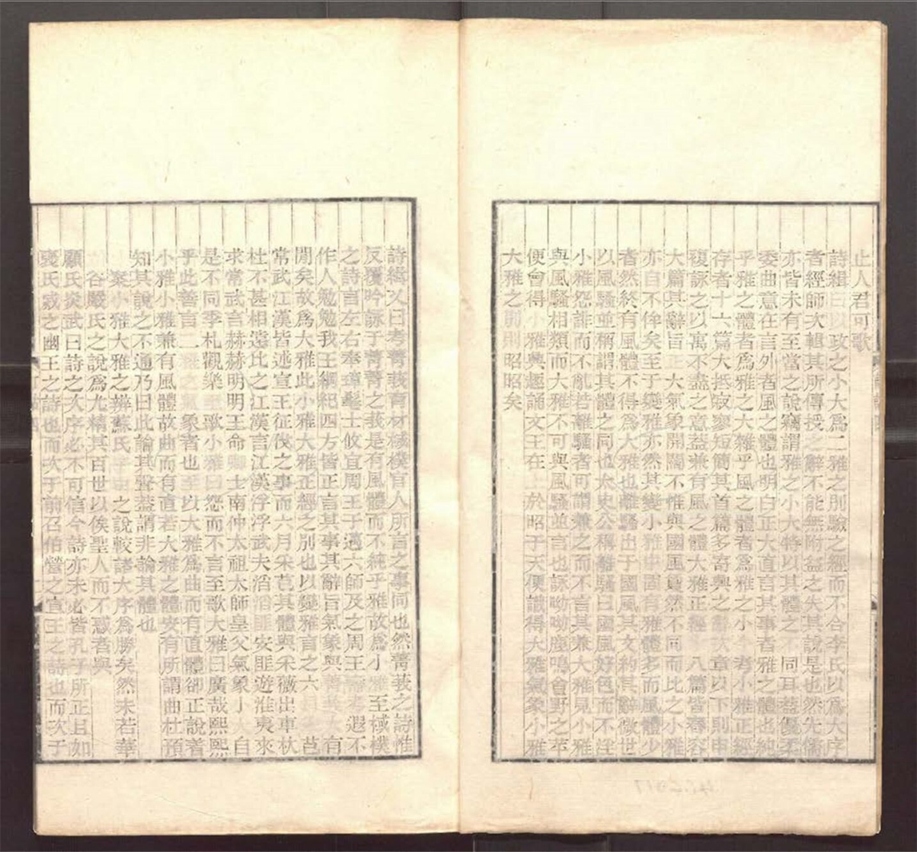 止人君可歌
詩緝曰以政之小大為二雅之別驗之經而不合李氏以為大序
者經師次輯其所傳授之辭不能無附益之失其說是也然先儒
亦皆未有至當之說竊謂雅之小大特以其體之不同耳蓋優柔
委曲意在言外者風之體也明白正大直言其事者雅之體也純
乎雅之體者為雅之大雜乎風之體者為雅之小今考小雅正經
存者十六篇大抵寂寥短簡其首篇多寄興之辭次章以下則申
複詠之以寓不盡之意蓋兼有風之體大雅正經十八篇皆舂容
大篇其辭旨正大氣象開闊不惟與國風夐然不同而比之小雅
亦自不侔矣至于變雅亦然其變小雅中固有雅體多而風體少
者然終有風體不得為大雅也離騷出于國風其文約其辭微世
以風騷並稱謂其體之同也太史公稱離騷曰國風好色而不淫
小雅怨誹而不亂若離騷者可謂兼之矣而不言其兼大雅見小雅
與風騷相類而大雅不可與風騷並言也詠呦呦鹿鳴食野之苹
便會得小雅興趣誦文王在上於昭于天便識得大雅氣象小雅
大雅之別則昭昭矣
詩緝又曰考菁莪育材棫樸官人所言之事同也然菁莪之詩惟
反覆吟詠于菁菁之莪是有風體而不純乎雅故為小雅至棫樸
之詩言左右奉璋髦士攸宜周王于邁六師及之周王壽考遐不
作人勉勉我王綱紀四方皆正言其事其辭旨氣象與菁莪大有
間矣故為大雅此小雅大雅正經之別也以變雅言之六月采芑
常武江漢皆述宣王征伐之事而六月采芑其體與采薇出車杕
杜不甚相遠比之江漢言江漢浮浮武夫滔滔匪安匪遊淮夷來
求常武言赫赫明明王命卿士南仲太祖太師皇父氣象小大自
是不同季札觀樂至歌小雅曰怨而不言至歌大雅曰廣哉熙熙
乎此善言二雅之氣象者也至以大雅為曲而有直體卻正說著
小雅小雅兼有風體故曲而有直若大雅之體安有所謂曲杜預
知其說之不通乃曰此論其聲蓋謂非論其體也
案小雅大雅之辨蘇氏李氏之說較諸大序為勝矣然未若華
谷嚴氏之說為尤精其百世以俟聖人而不惑者與
顧氏炎武曰詩之大序必不可信今詩亦未必皆孔子所正且如
褒氏威之國王之詩也而次于前召伯營之宣王之詩也而次于